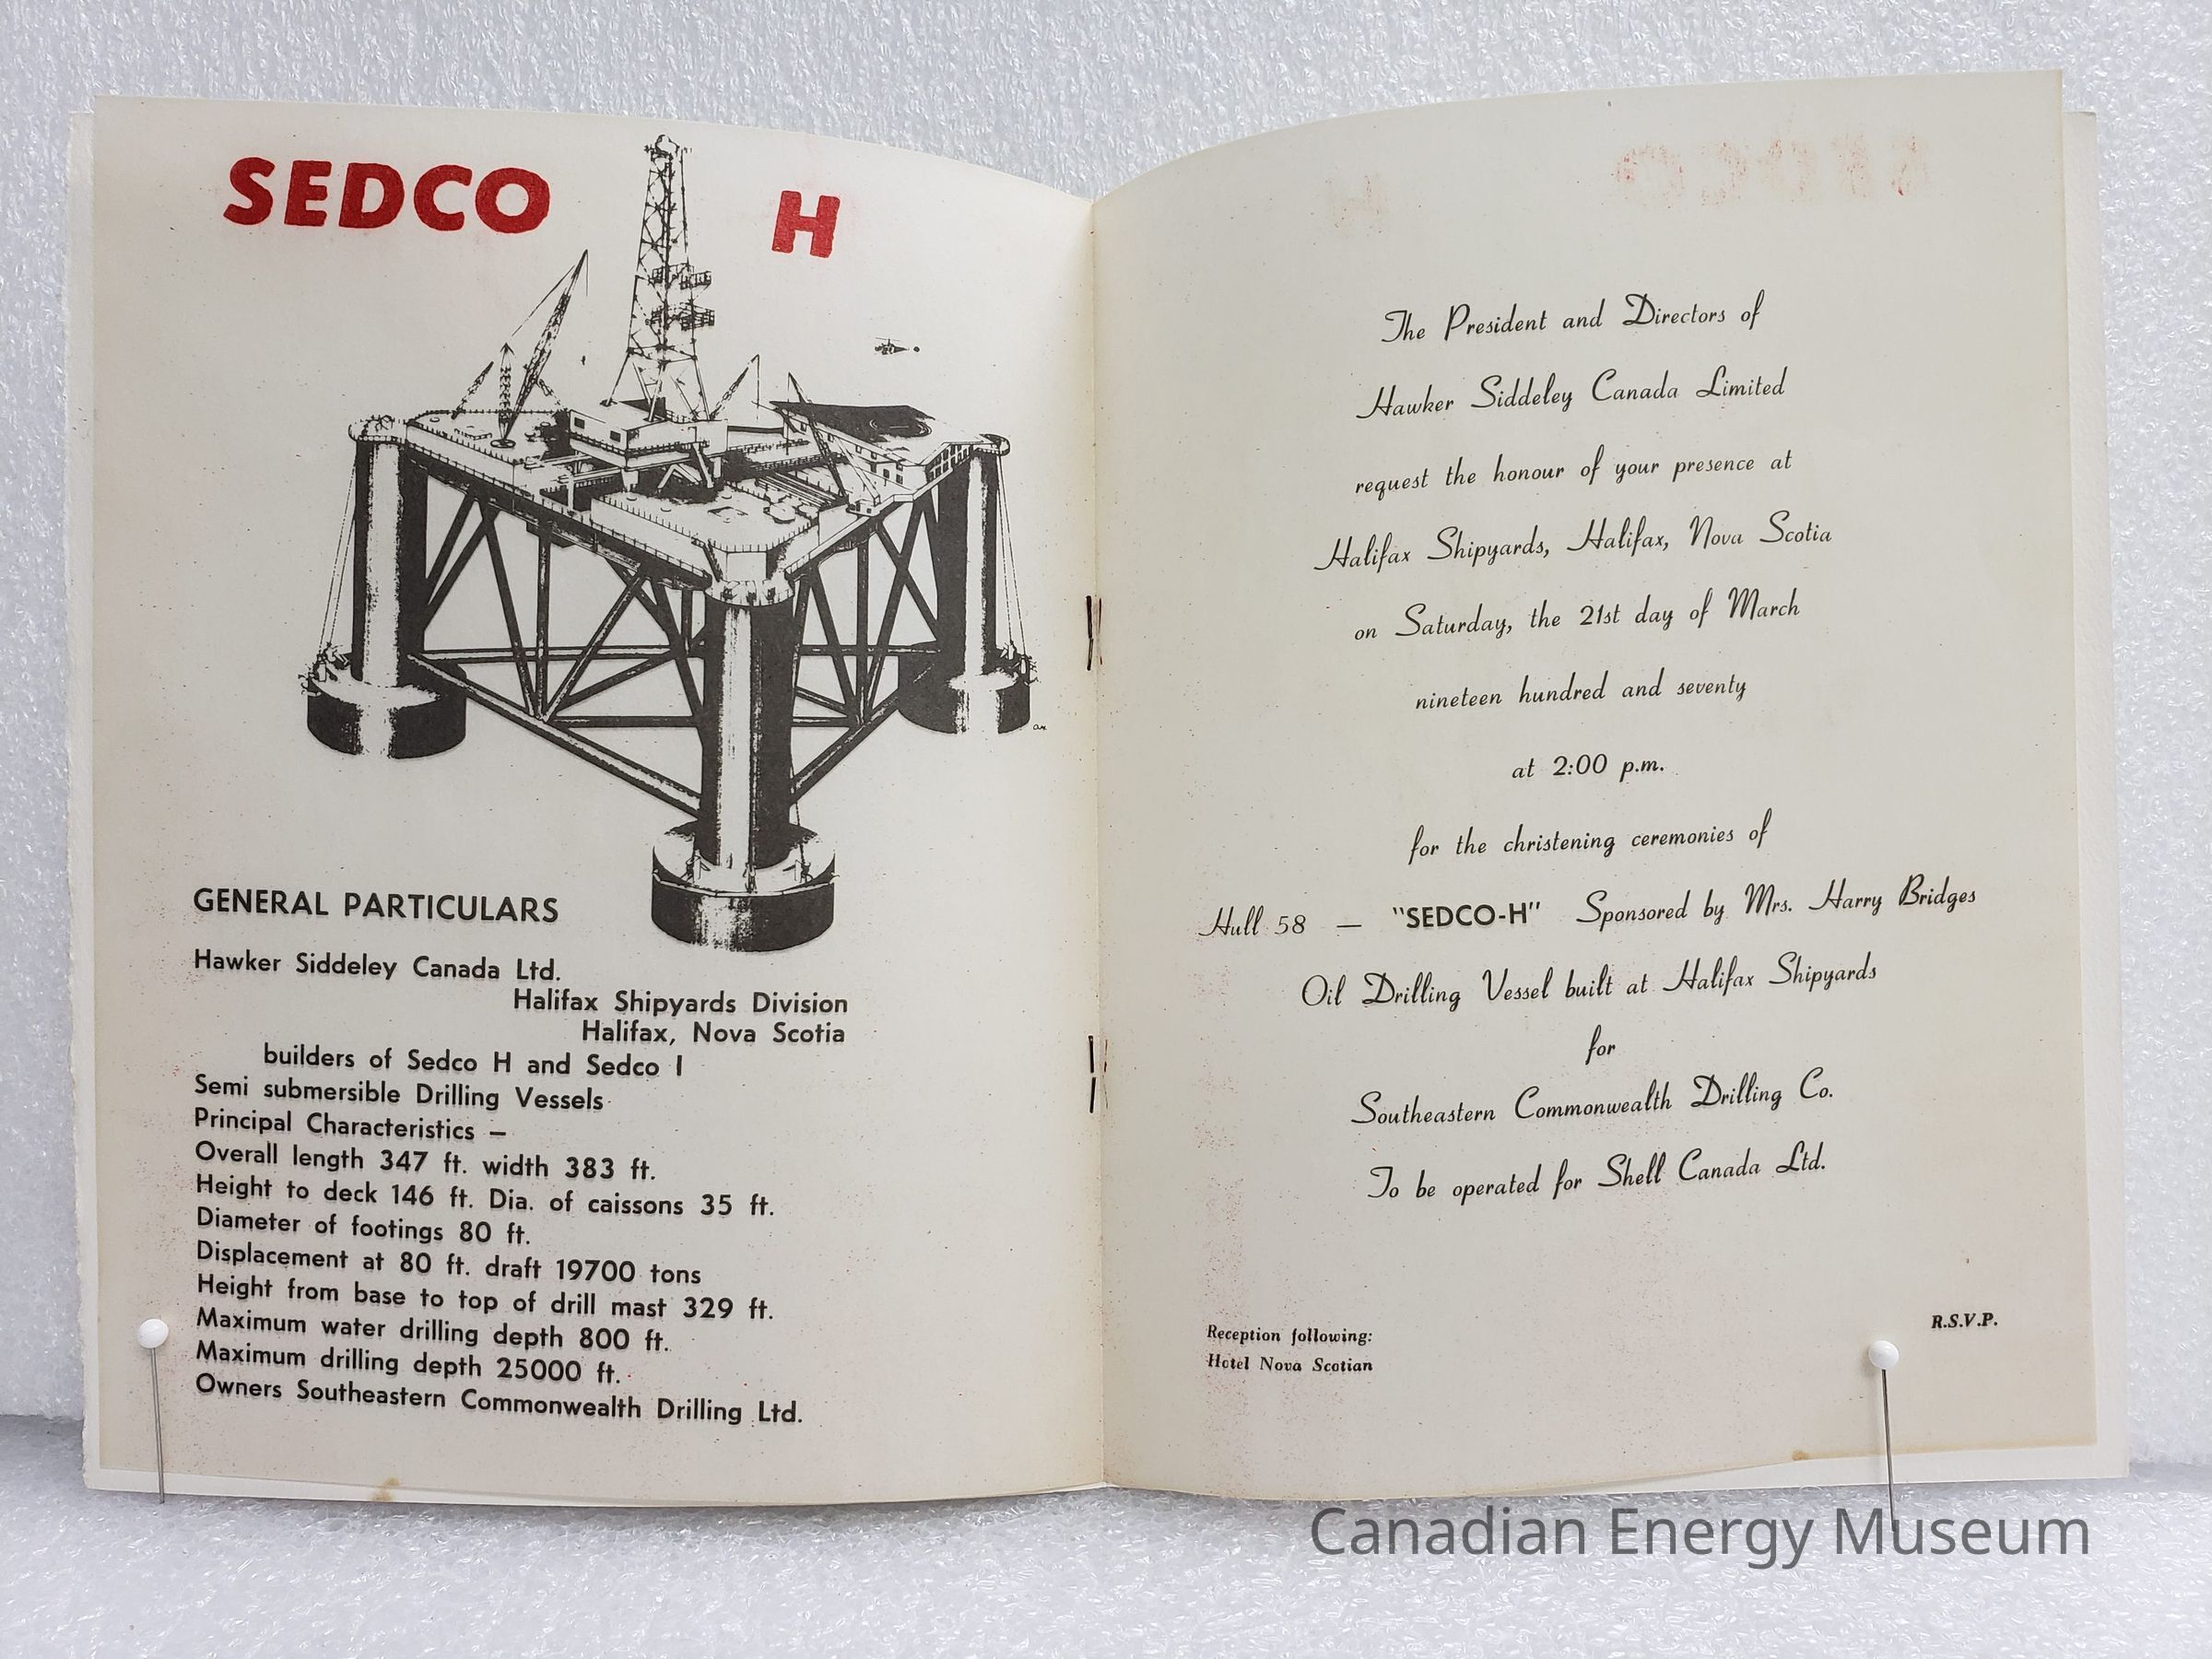 SEDCO H
GENERAL PARTICULARS
Hawker Siddeley Canada Ltd.
Halifax Shipyards Division
Halifax, Nova Scotia
builders of Sedco H and Sedco I
Semi submersible Drilling Vessels
Principal Characteristics –
Overall length 347 ft. width 383 ft.
Height to deck 146 ft. Dia. of caissons 35 ft.
Diameter of footings 80 ft.
Displacement at 80 ft. draft 19700 tons
Height from base to top of drill mast 329 ft.
Maximum water drilling depth 800 ft.
Maximum drilling depth 25000 ft.
Owners Southeastern Commonwealth Drilling Ltd.
The President and Directors of
Hawker Siddeley Canada Limited
request the honour of your presence at
Halifax Shipyards, Halifax, Nova Scotia
on Saturday, the 21st day of March
nineteen hundred and seventy
at 2:00 p.m.
for the christening ceremonies of
Hull 58 — "SEDCO-H" Sponsored by Mrs. Harry Bridges
Oil Drilling Vessel built at Halifax Shipyards
for
Southeastern Commonwealth Drilling Co.
To be operated for Shell Canada Ltd.
R.S.V.P.
Reception following:
Hotel Nova Scotian
Canadian Energy Museum